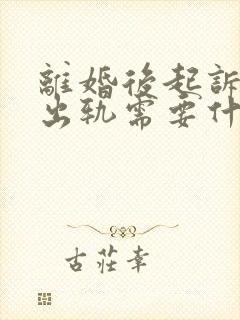 離婚後起訴
出軌需要什
古莊幸